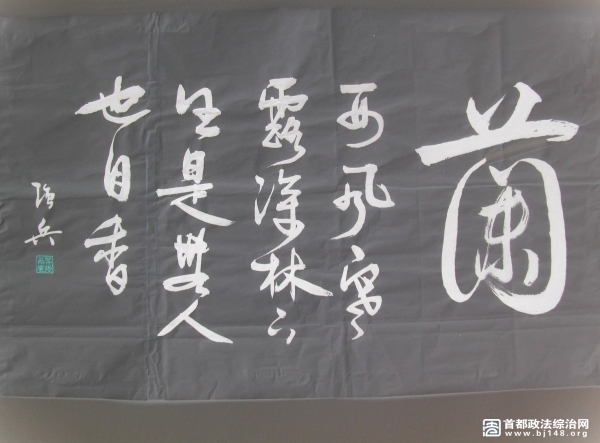 蘭
西风寒
露深林下
任是無人
也自香
兵
首都政法综治网
www.bj148.org